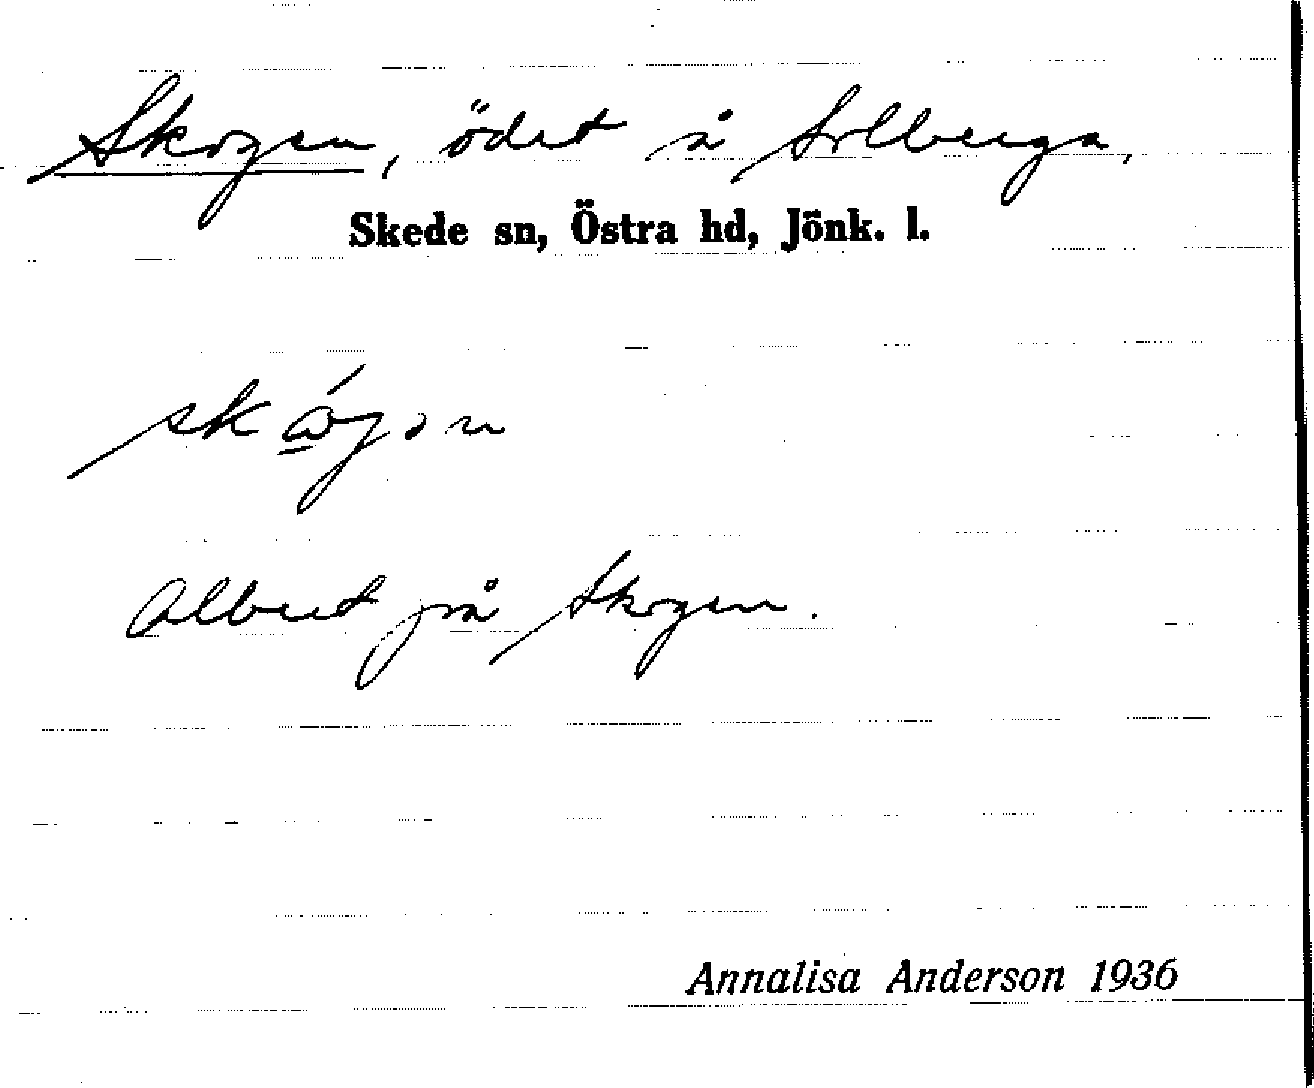 Skogen, ödet å Solberga,
Skede sn, Östra hd, Jönk. l.
Albert på Skogen.
Annalisa Anderson 1936